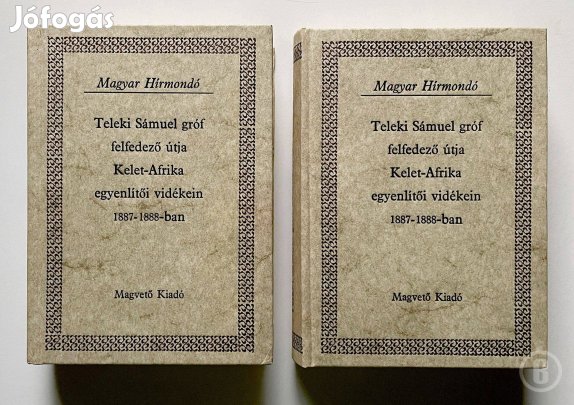 Jófogás
Magyar Hírmondó
Teleki Sámuel gróf
felfedező útja
Kelet-Afrika
egyenlítői vidékein
1887-1888-ban
Magvető Kiadó
Magyar Hírmondó
Teleki Sámuel gróf
felfedező útja
Kelet-Afrika
egyenlítői vidékein
1887-1888-ban
Magvető Kiadó